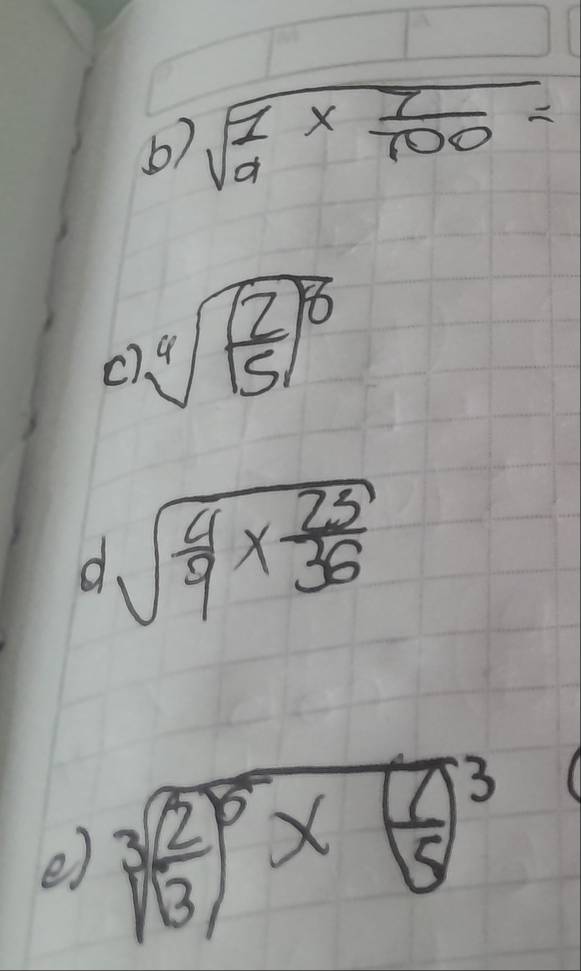 b) √(1/9 × 1/100) =
c) ⁴√((2/5)⁸)
d √(4/9 × 25/36)
e) ³√((2/3)⁶ × (1/5)³)